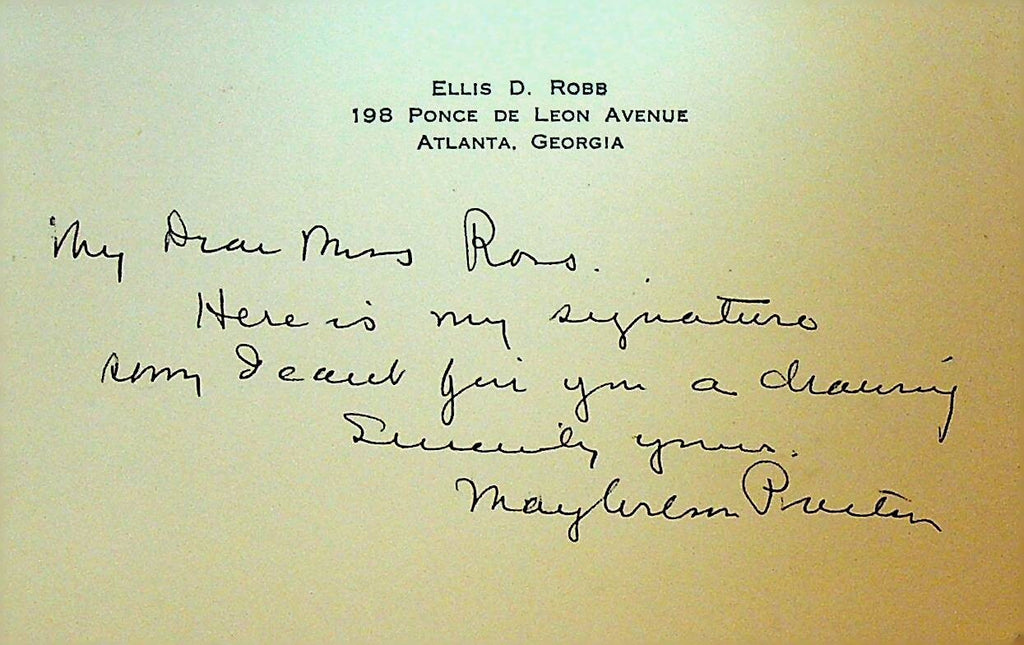 ELLIS D. ROBB
198 PONCE DE LEON AVENUE
ATLANTA, GEORGIA
My Dear Miss Ross.
Here is my signature
sorry I can't give you a drawing
Sincerely yours.
May Wilson Preston